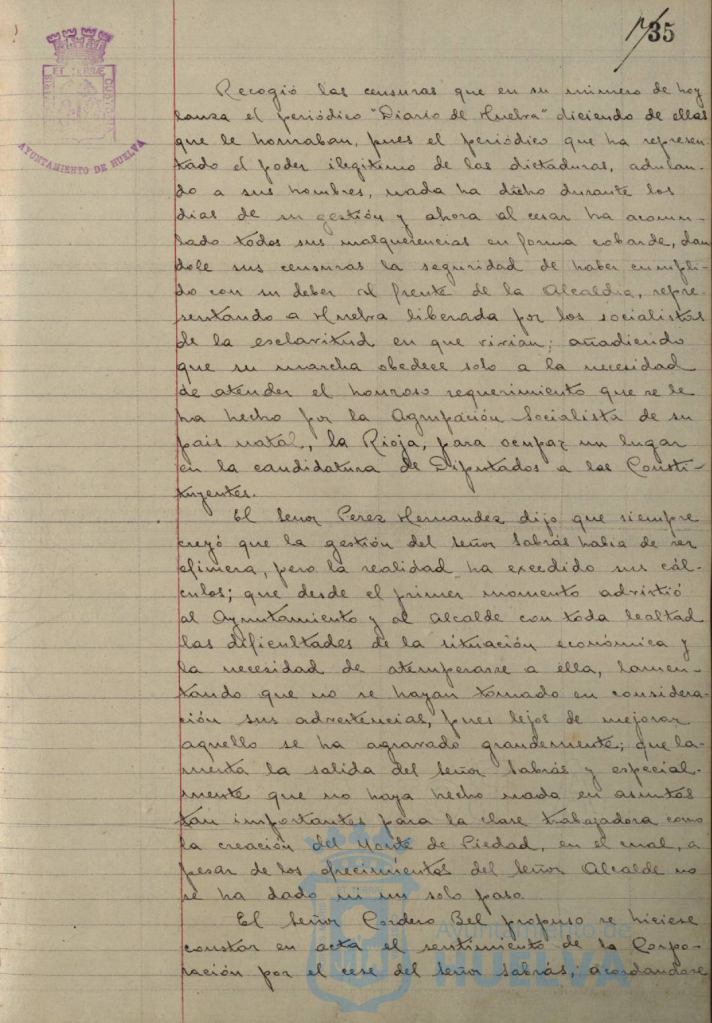 35
PORTUS MARIS ET TERRAE CUSTODIA
AYUNTAMIENTO DE HUELVA
Recogió las censuras que en su número de hoy
lanza el periódico "Diario de Huelva" diciendo de ellas
que le honraban, pues el periódico que ha represen-
tado el poder ilegítimo de las dictaduras, adulan-
do a sus hombres, nada ha dicho durante los
días de su gestión y ahora al cesar ha acomu-
lado todos sus malquerencias en forma cobarde, dan
dole sus censuras la seguridad de haber cumpli-
do con su deber al frente de la Alcaldía, repre-
sentando a Huelva liberada por los socialistas
de la esclavitud en que vivian; añadiendo
que su marcha obedece solo a la necesidad
de atender el honroso requerimiento que se le
ha hecho por la Agrupación Socialista de su
pais natal, la Rioja, para ocupar un lugar
en la candidatura de Diputados a las Consti-
tuyentes.
El Señor Perez Hernandez dijo que siempre
creyó que la gestión del Señor Sabrás habia de ser
efimera, pero la realidad ha excedido sus cál-
culos; que desde el primer momento advirtió
al Ayuntamiento y al Alcalde con toda lealtad
las dificultades de la situación económica y
la necesidad de atemperarse a ella, lamen-
tando que no se hayan tomado en considera-
ción sus advertencias, pues lejos de mejorar
aquello se ha agravado grandemente; que la-
menta la salida del Señor Sabrás y especial-
mente que no haya hecho nada en asuntos
tan importantes para la clase trabajadora como
la creación del Monte de Piedad, en el cual, a
pesar de los ofrecimientos del Señor Alcalde no
se ha dado ni un solo paso.
El Señor Cordero Bel propuso se hiciese
constar en acta el sentimiento de la Corpo-
ración por el cese del Señor Sabrás, acordandose
Ayuntamiento de
HUELVA